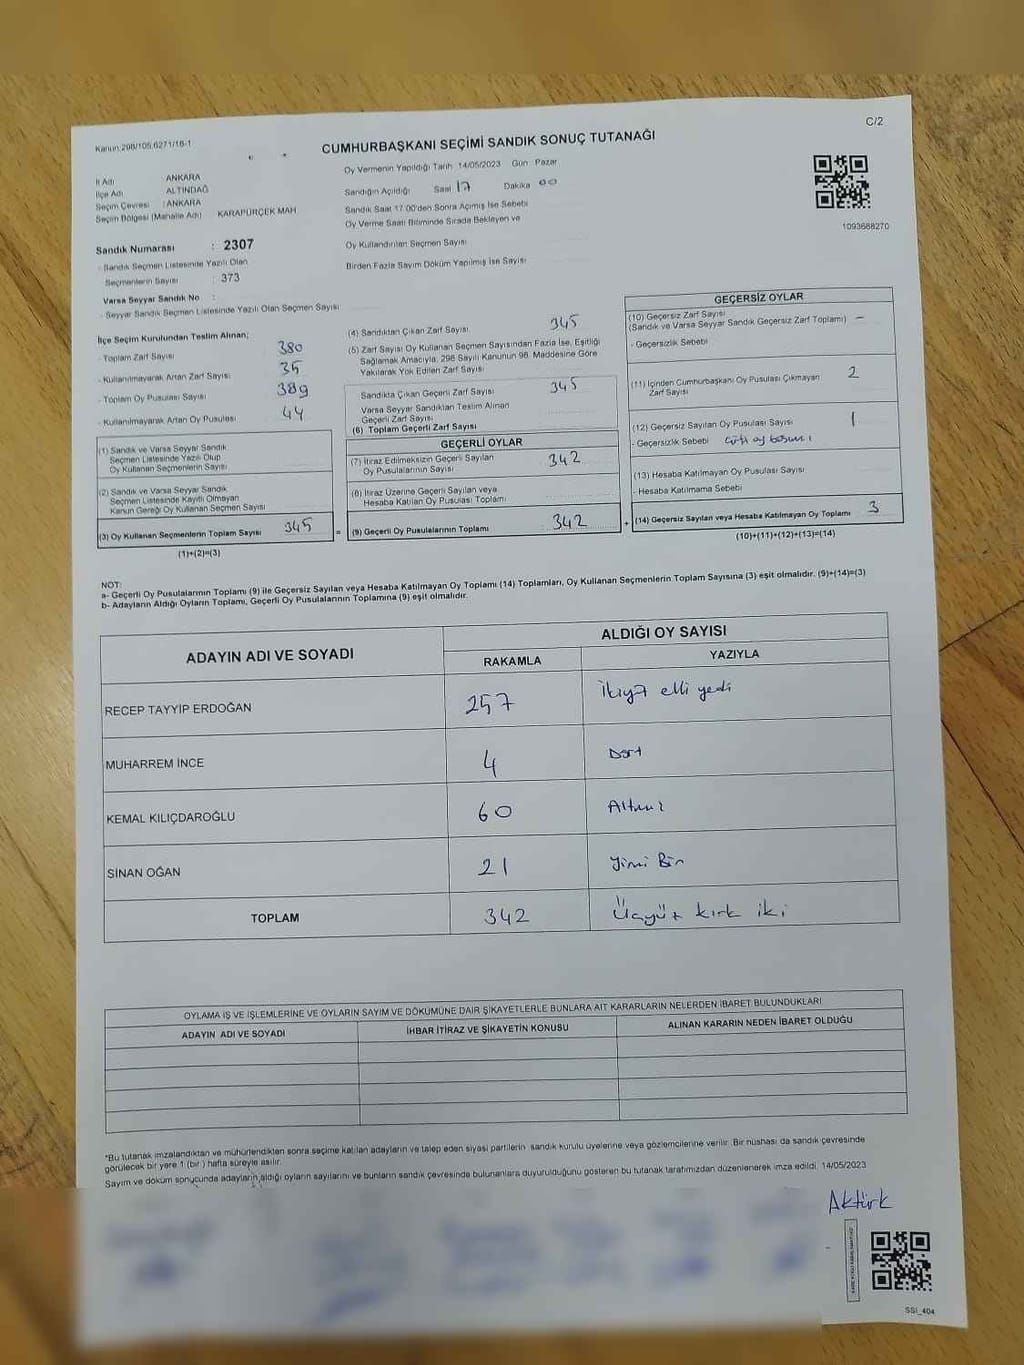 C/2
Kanun 298/105,6271/16-1
CUMHURBAŞKANI SEÇİMİ SANDIK SONUÇ TUTANAĞI
İl Adı ANKARA
İlçe Adı ALTINDAĞ
Seçim Çevresi : ANKARA
Seçim Bölgesi (Mahalle Adı) KARAPÜRÇEK MAH
Sandık Numarası : 2307
- Sandık Seçmen Listesinde Yazılı Olan
Seçmenlerin Sayısı : 373
Varsa Seyyar Sandık No :
- Seyyar Sandık Seçmen Listesinde Yazılı Olan Seçmen Sayısı
Oy Vermenin Yapıldığı Tarih 14/05/2023 Gün Pazar
Sandığın Açıldığı Saat 17 Dakika 00
Sandık Saat 17.00'den Sonra Açımış İse Sebebi
Oy Verme Saati Bitiminde Sırada Bekleyen ve
Oy Kullandırılan Seçmen Sayısı
Birden Fazla Sayım Döküm Yapılmış İse Sayısı
1093688270
İlçe Seçim Kurulundan Teslim Alınan;
- Toplam Zarf Sayısı 380
- Kullanılmayarak Artan Zarf Sayısı 35
- Toplam Oy Pusulası Sayısı 389
- Kullanılmayarak Artan Oy Pusulası 44
(1) Sandık ve Varsa Seyyar Sandık
Seçmen Listesinde Yazılı Olup
Oy Kullanan Seçmenlerin Sayısı
(2) Sandık ve Varsa Seyyar Sandık
Seçmen Listesinde Kayıtlı Olmayan
Kanun Gereği Oy Kullanan Seçmen Sayısı
(3) Oy Kullanan Seçmenlerin Toplam Sayısı 345
(1)+(2)=(3)
(4) Sandıktan Çıkan Zarf Sayısı 345
(5) Zarf Sayısı Oy Kullanan Seçmen Sayısından Fazla İse, Eşitliği
Sağlamak Amacıyla, 298 Sayılı Kanunun 98. Maddesine Göre
Yakılarak Yok Edilen Zarf Sayısı
Sandıkta Çıkan Geçerli Zarf Sayısı 345
Varsa Seyyar Sandıktan Teslim Alınan
Geçerli Zarf Sayısı
(6) Toplam Geçerli Zarf Sayısı
GEÇERLİ OYLAR
(7) İtiraz Edilmeksizin Geçerli Sayılan
Oy Pusulalarının Sayısı 342
(8) İtiraz Üzerine Geçerli Sayılan veya
Hesaba Katılan Oy Pusulası Toplamı
= (9) Geçerli Oy Pusulalarının Toplamı 342
GEÇERSİZ OYLAR
(10) Geçersiz Zarf Sayısı
(Sandık ve Varsa Seyyar Sandık Geçersiz Zarf Toplamı) –
- Geçersizlik Sebebi
(11) İçinden Cumhurbaşkanı Oy Pusulası Çıkmayan
Zarf Sayısı 2
(12) Geçersiz Sayılan Oy Pusulası Sayısı 1
- Geçersizlik Sebebi
(13) Hesaba Katılmayan Oy Pusulası Sayısı
- Hesaba Katılmama Sebebi
+ (14) Geçersiz Sayılan veya Hesaba Katılmayan Oy Toplamı 3
(10)+(11)+(12)+(13)=(14)
NOT:
a- Geçerli Oy Pusulalarının Toplamı (9) ile Geçersiz Sayılan veya Hesaba Katılmayan Oy Toplamı (14) Toplamları, Oy Kullanan Seçmenlerin Toplam Sayısına (3) eşit olmalıdır. (9)+(14)=(3)
b- Adayların Aldığı Oyların Toplamı, Geçerli Oy Pusulalarının Toplamına (9) eşit olmalıdır.
ADAYIN ADI VE SOYADI ALDIĞI OY SAYISI
RAKAMLA YAZIYLA
RECEP TAYYİP ERDOĞAN 257 İkiyz elli yedi
MUHARREM İNCE 4 Dört
KEMAL KILIÇDAROĞLU 60 Altmış
SİNAN OĞAN 21 Yirmi Bir
TOPLAM 342 Üçyüz kırk iki
OYLAMA İŞ VE İŞLEMLERİNE VE OYLARIN SAYIM VE DÖKÜMÜNE DAİR ŞİKAYETLERLE BUNLARA AİT KARARLARIN NELERDEN İBARET BULUNDUKLARI
ADAYIN ADI VE SOYADI İHBAR İTİRAZ VE ŞİKAYETİN KONUSU ALINAN KARARIN NEDEN İBARET OLDUĞU
*Bu tutanak imzalandıktan ve mühürlendikten sonra seçime katılan adayların ve talep eden siyasi partilerin sandık kurulu üyelerine veya gözlemcilerine verilir. Bir nüshası da sandık çevresinde
görülecek bir yere 1 (bir ) hafta süreyle asılır.
Sayım ve döküm sonucunda adayların aldığı oyların sayılarını ve bunların sandık çevresinde bulunanlara duyurulduğunu gösteren bu tutanak tarafımızdan düzenlenerek imza edildi. 14/05/2023
Aktürk
SSI_404